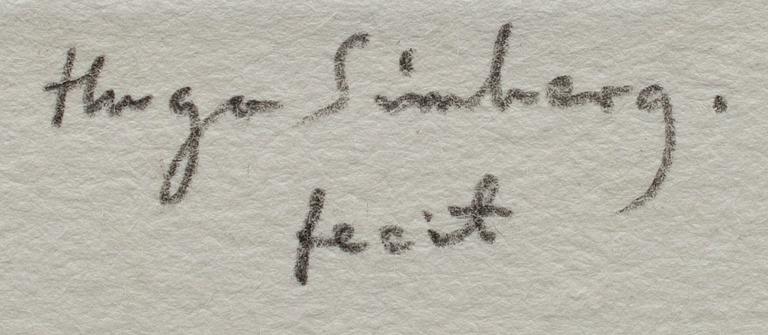 Hugo Simberg.
fecit